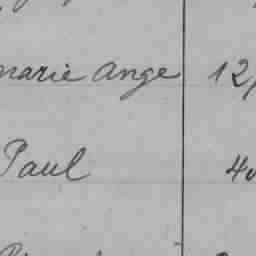 marie Ange 12
Paul 40